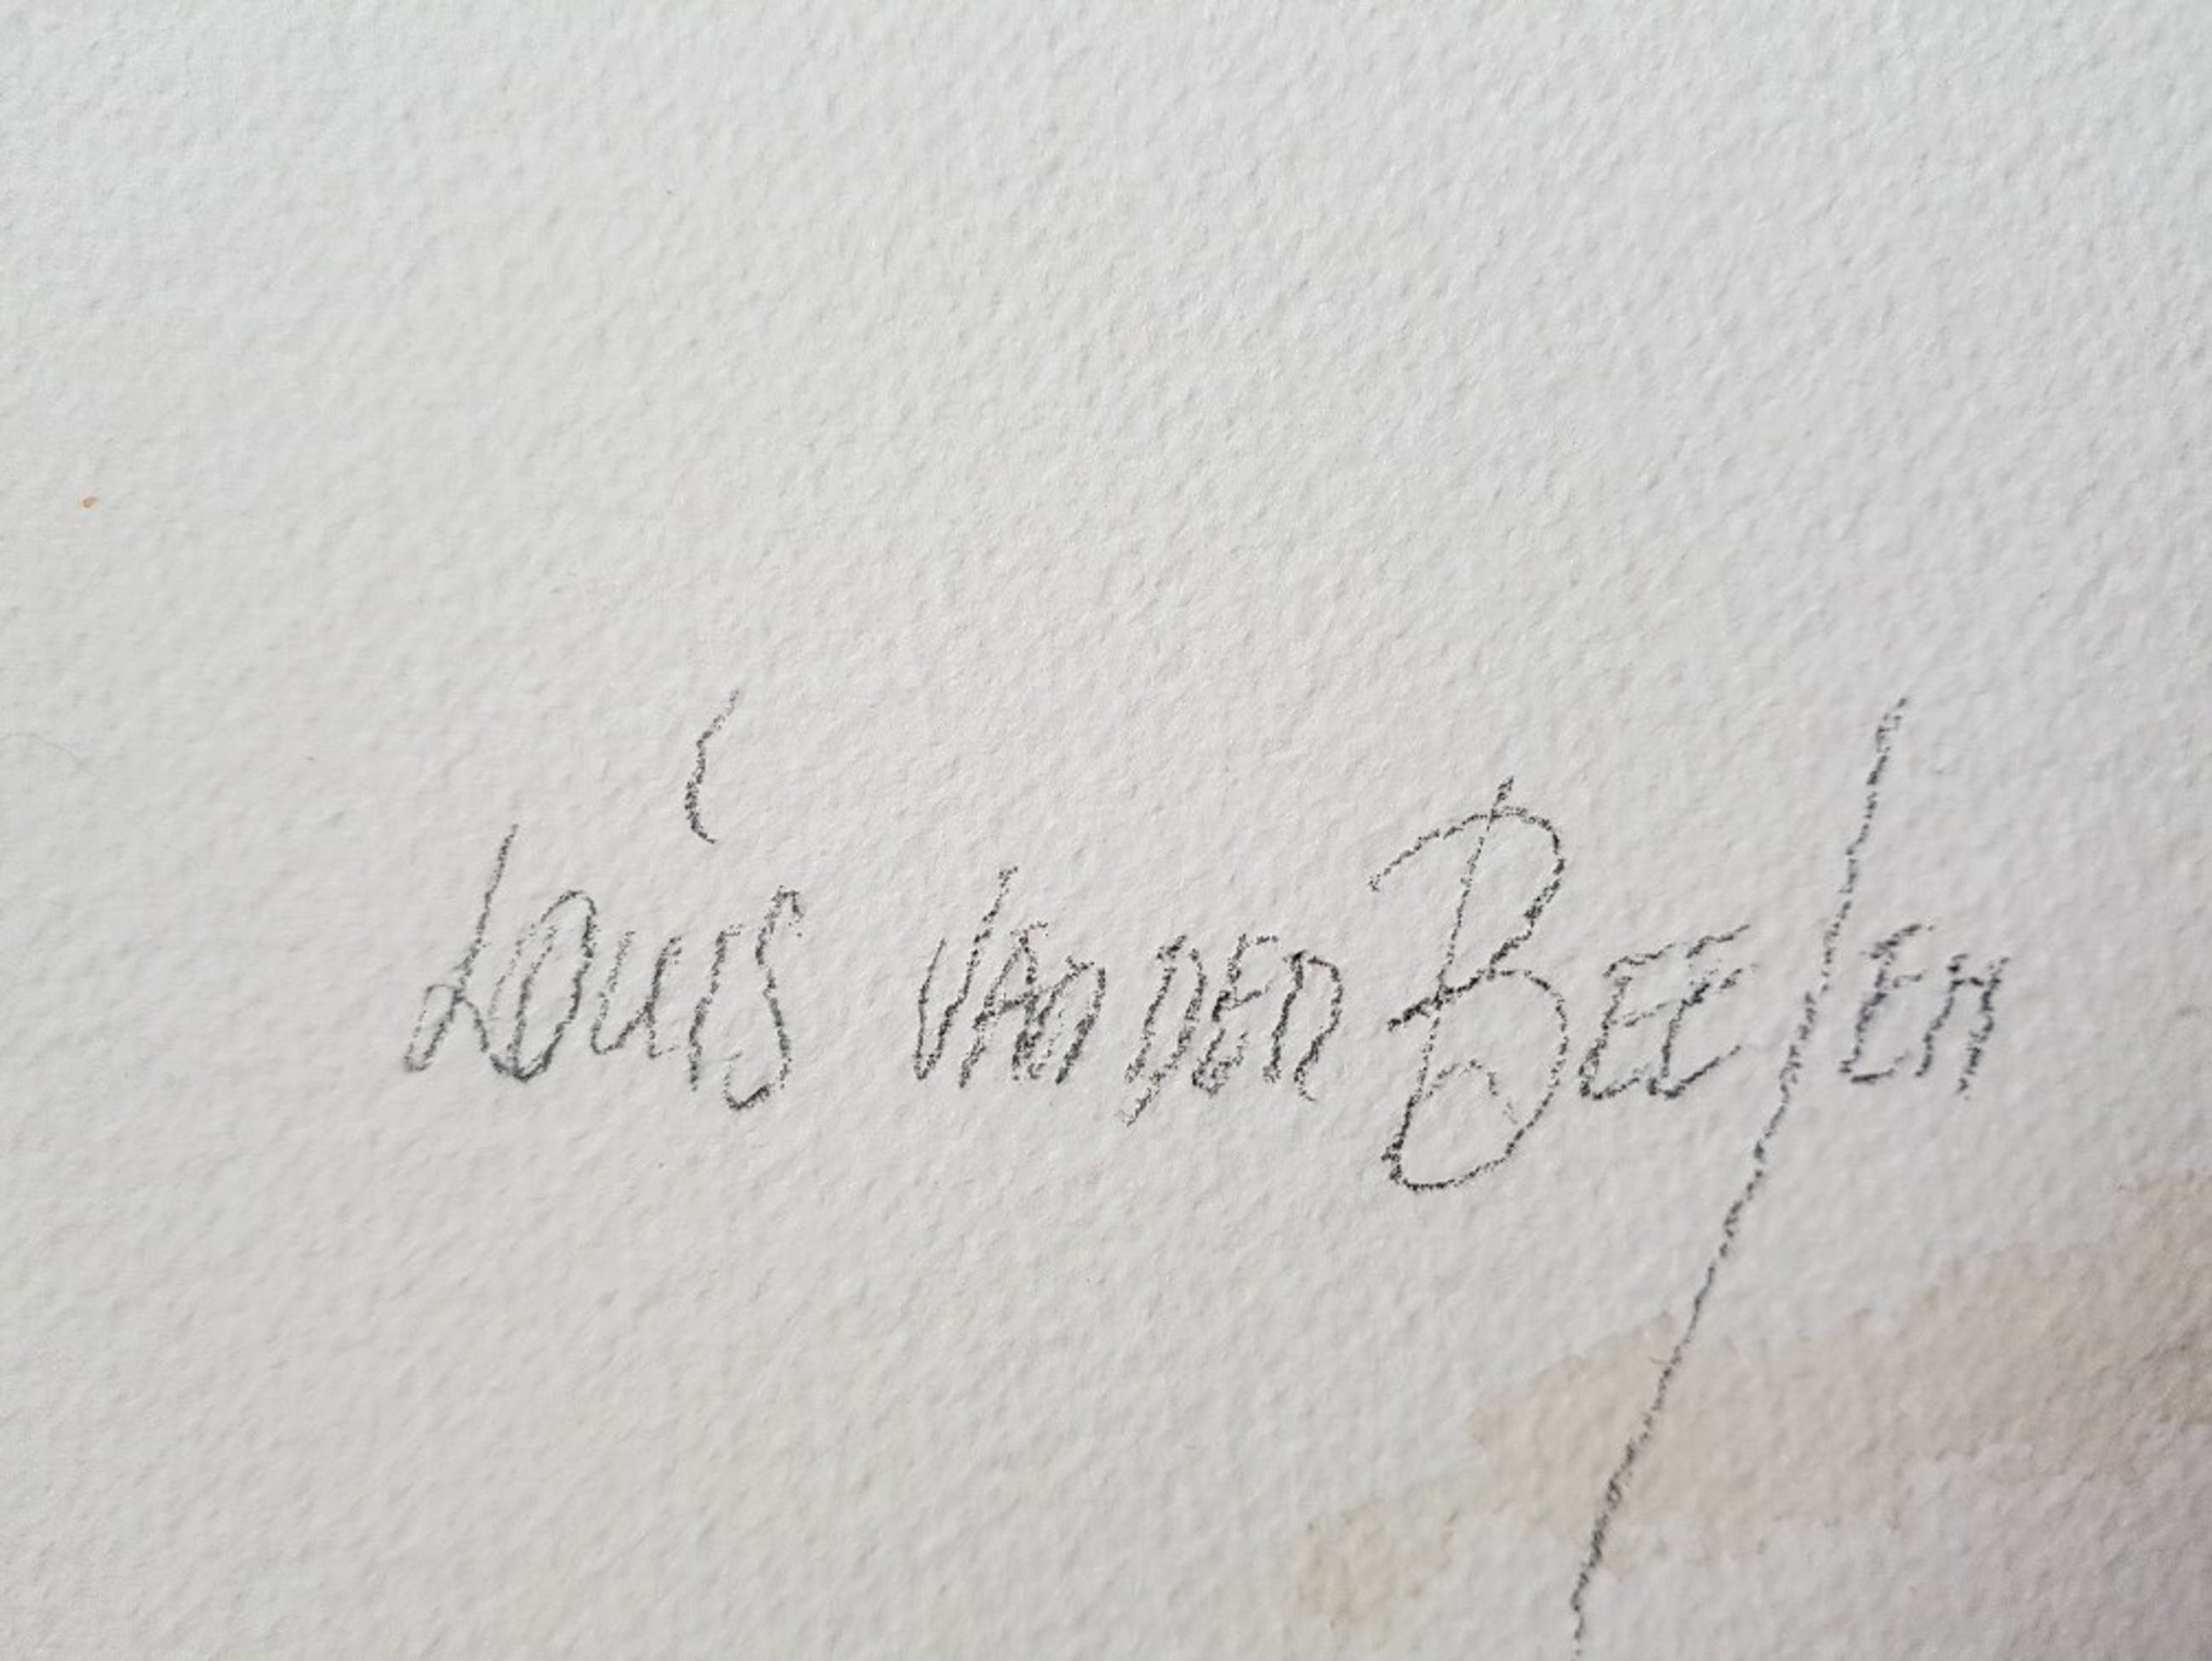 Louis VAN DEN BEElEN